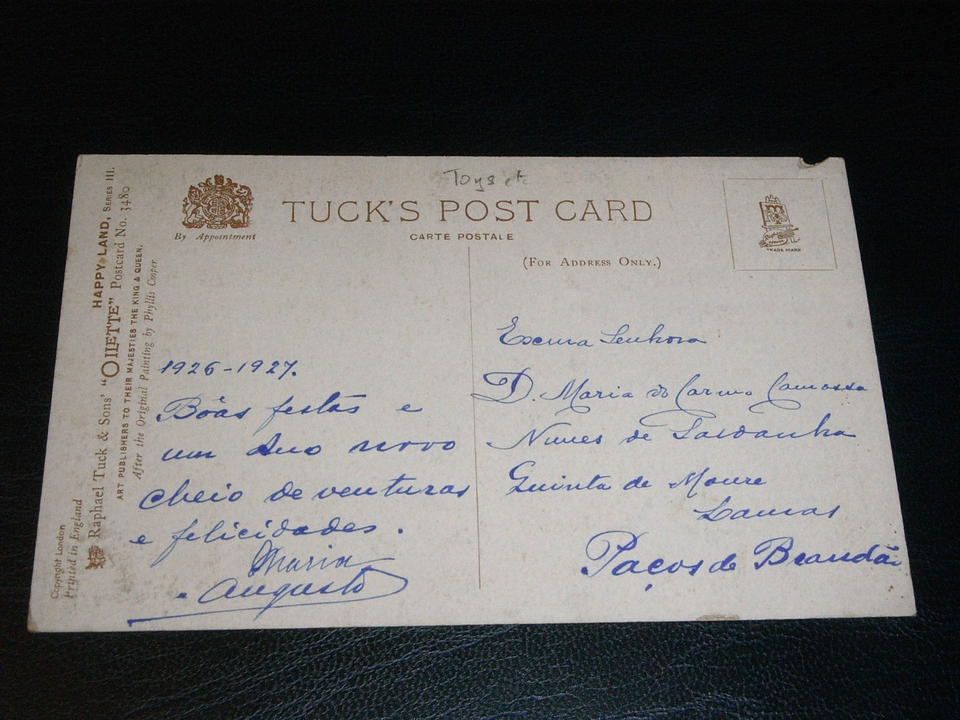 Toys etc
TUCK'S POST CARD
By Appointment
CARTE POSTALE
(FOR ADDRESS ONLY.)
TRADE MARK
HAPPY LAND, SERIES III.
Raphael Tuck & Sons' "OILETTE" Postcard No. 3480
ART PUBLISHERS TO THEIR MAJESTIES THE KING & QUEEN.
After the Original Painting by Phyllis Cooper.
Copyright London
Printed in England
1926-1927.
Bôas festas e
um Ano novo
cheio de venturas
e felicidades.
Maria
Augusto
Excma Senhora
D. Maria do Carmo Camossa
Nunes de Saldanha
Quinta de Moure
Lamas
Paços de Brandão